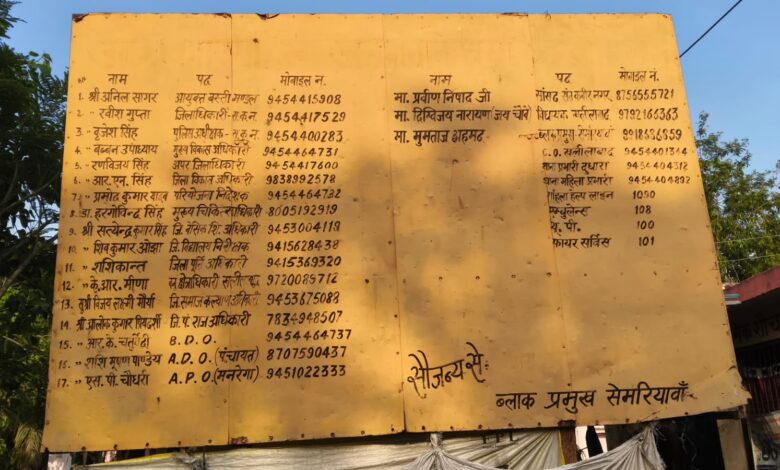 नाम पद मोबाइल न.
1. श्री अनिल सागर आयुक्त बस्ती मण्डल 9454415908
2 - " रवीश गुप्ता जिलाधिकारी 9454417529
3 - " बृजेश सिंह पुलिस अधीक्षक 9454400283
4 - " बब्बन उपाध्याय मुख्य विकास अधिकारी 9454464731
5 - " रणविजय सिंह अपर जिलाधिकारी 9454417600
6 - " आर.एन. सिंह जिला विकास अधिकारी 9838992578
7 " प्रमोद कुमार यादव परियोजना निदेशक
8 डा. हरगोविन्द सिंह मुख्य चिकित्साधिकारी 8005192919
9 श्री सत्येन्द्र कुमार सिंह जि. बेसिक शि. अधिकारी 9453004119
10 " शिव कुमार ओझा जि. विद्यालय निरीक्षक 9415628438
11 " शशिकान्त जिला पूर्ति अधिकारी 9415369320
12 " के.आर. मीणा 9720089712
13. सुश्री विजय लक्ष्मी मौर्या जि. समाज कल्याण अधिकारी 9453675088
14 श्री आलोक कुमार प्रियदर्शी जि. पं. राज अधिकारी 7834948507
15 " आर.के. चतुर्वेदी B.D.O. 9454464737
16 " शशि भूषण पाण्डेय A.D.O. (पंचायत) 8707590437
17 " एस.पी. चौधरी A.P.O. (मनरेगा) 9451022333
नाम पद मोबाइल नं.
मा. प्रवीण निषाद जी सांसद संत कबीर नगर 8756555721
मा. दिग्विजय नारायण (जय चौबे) विधायक खलीलाबाद 9792166363
मा. मुमताज अहमद ब्लाक प्रमुख सेमरियावां 9918686859
C.O. खलीलाबाद
थाना प्रभारी दुधारा 9454404318
थाना महिला प्रभारी
महिला हेल्प लाइन 1090
एम्बुलेन्स 108
यू. पी. 100
फायर सर्विस 101
सौजन्य से:
ब्लाक प्रमुख सेमरियावाँ